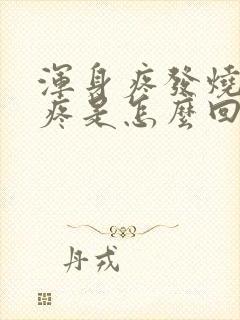 渾身疼發燒
疼是怎麼回
丹戎